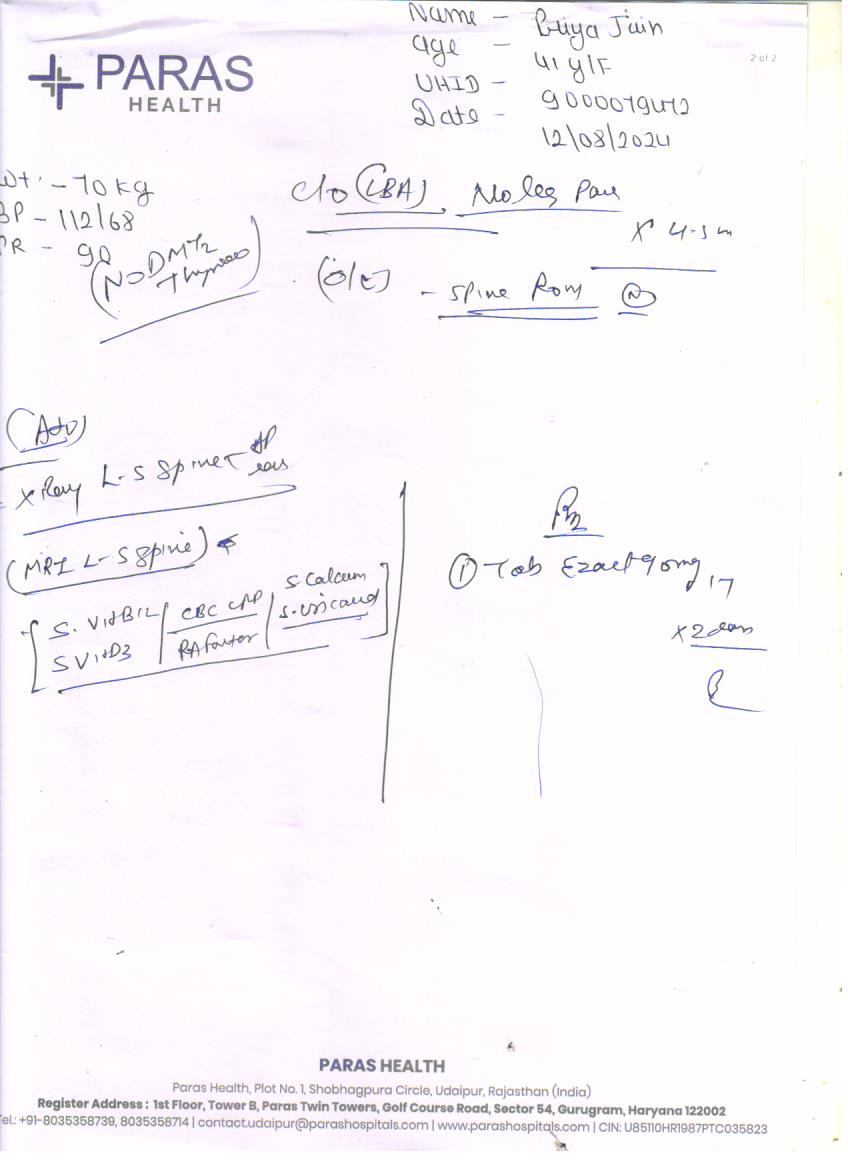 Name - Priya Jain
Age - 41 y/F
UHID - 9000079472
Date - 12/08/2024
2 of 2
PARAS
HEALTH
Wt. - 70 kg
BP - 112/68
PR - 90
(No DM
C/o (LBA), No leg Pain
(O/E)
- Spine Rom (N)
(Adv)
- X Ray L-S Spine AP
(MRI L-S Spine)
S. Vit B12 / CBC CRP / S Calcium
S Vit D3 / RA Factor / S. Uric acid
Rx
① Tab Ezact 90mg
PARAS HEALTH
Paras Health, Plot No. 1, Shobhagpura Circle, Udaipur, Rajasthan (India)
Register Address : 1st Floor, Tower B, Paras Twin Towers, Golf Course Road, Sector 54, Gurugram, Haryana 122002
Tel.: +91-8035358739, 8035358714 | contact.udaipur@parashospitals.com | www.parashospitals.com | CIN: U85110HR1987PTC035823